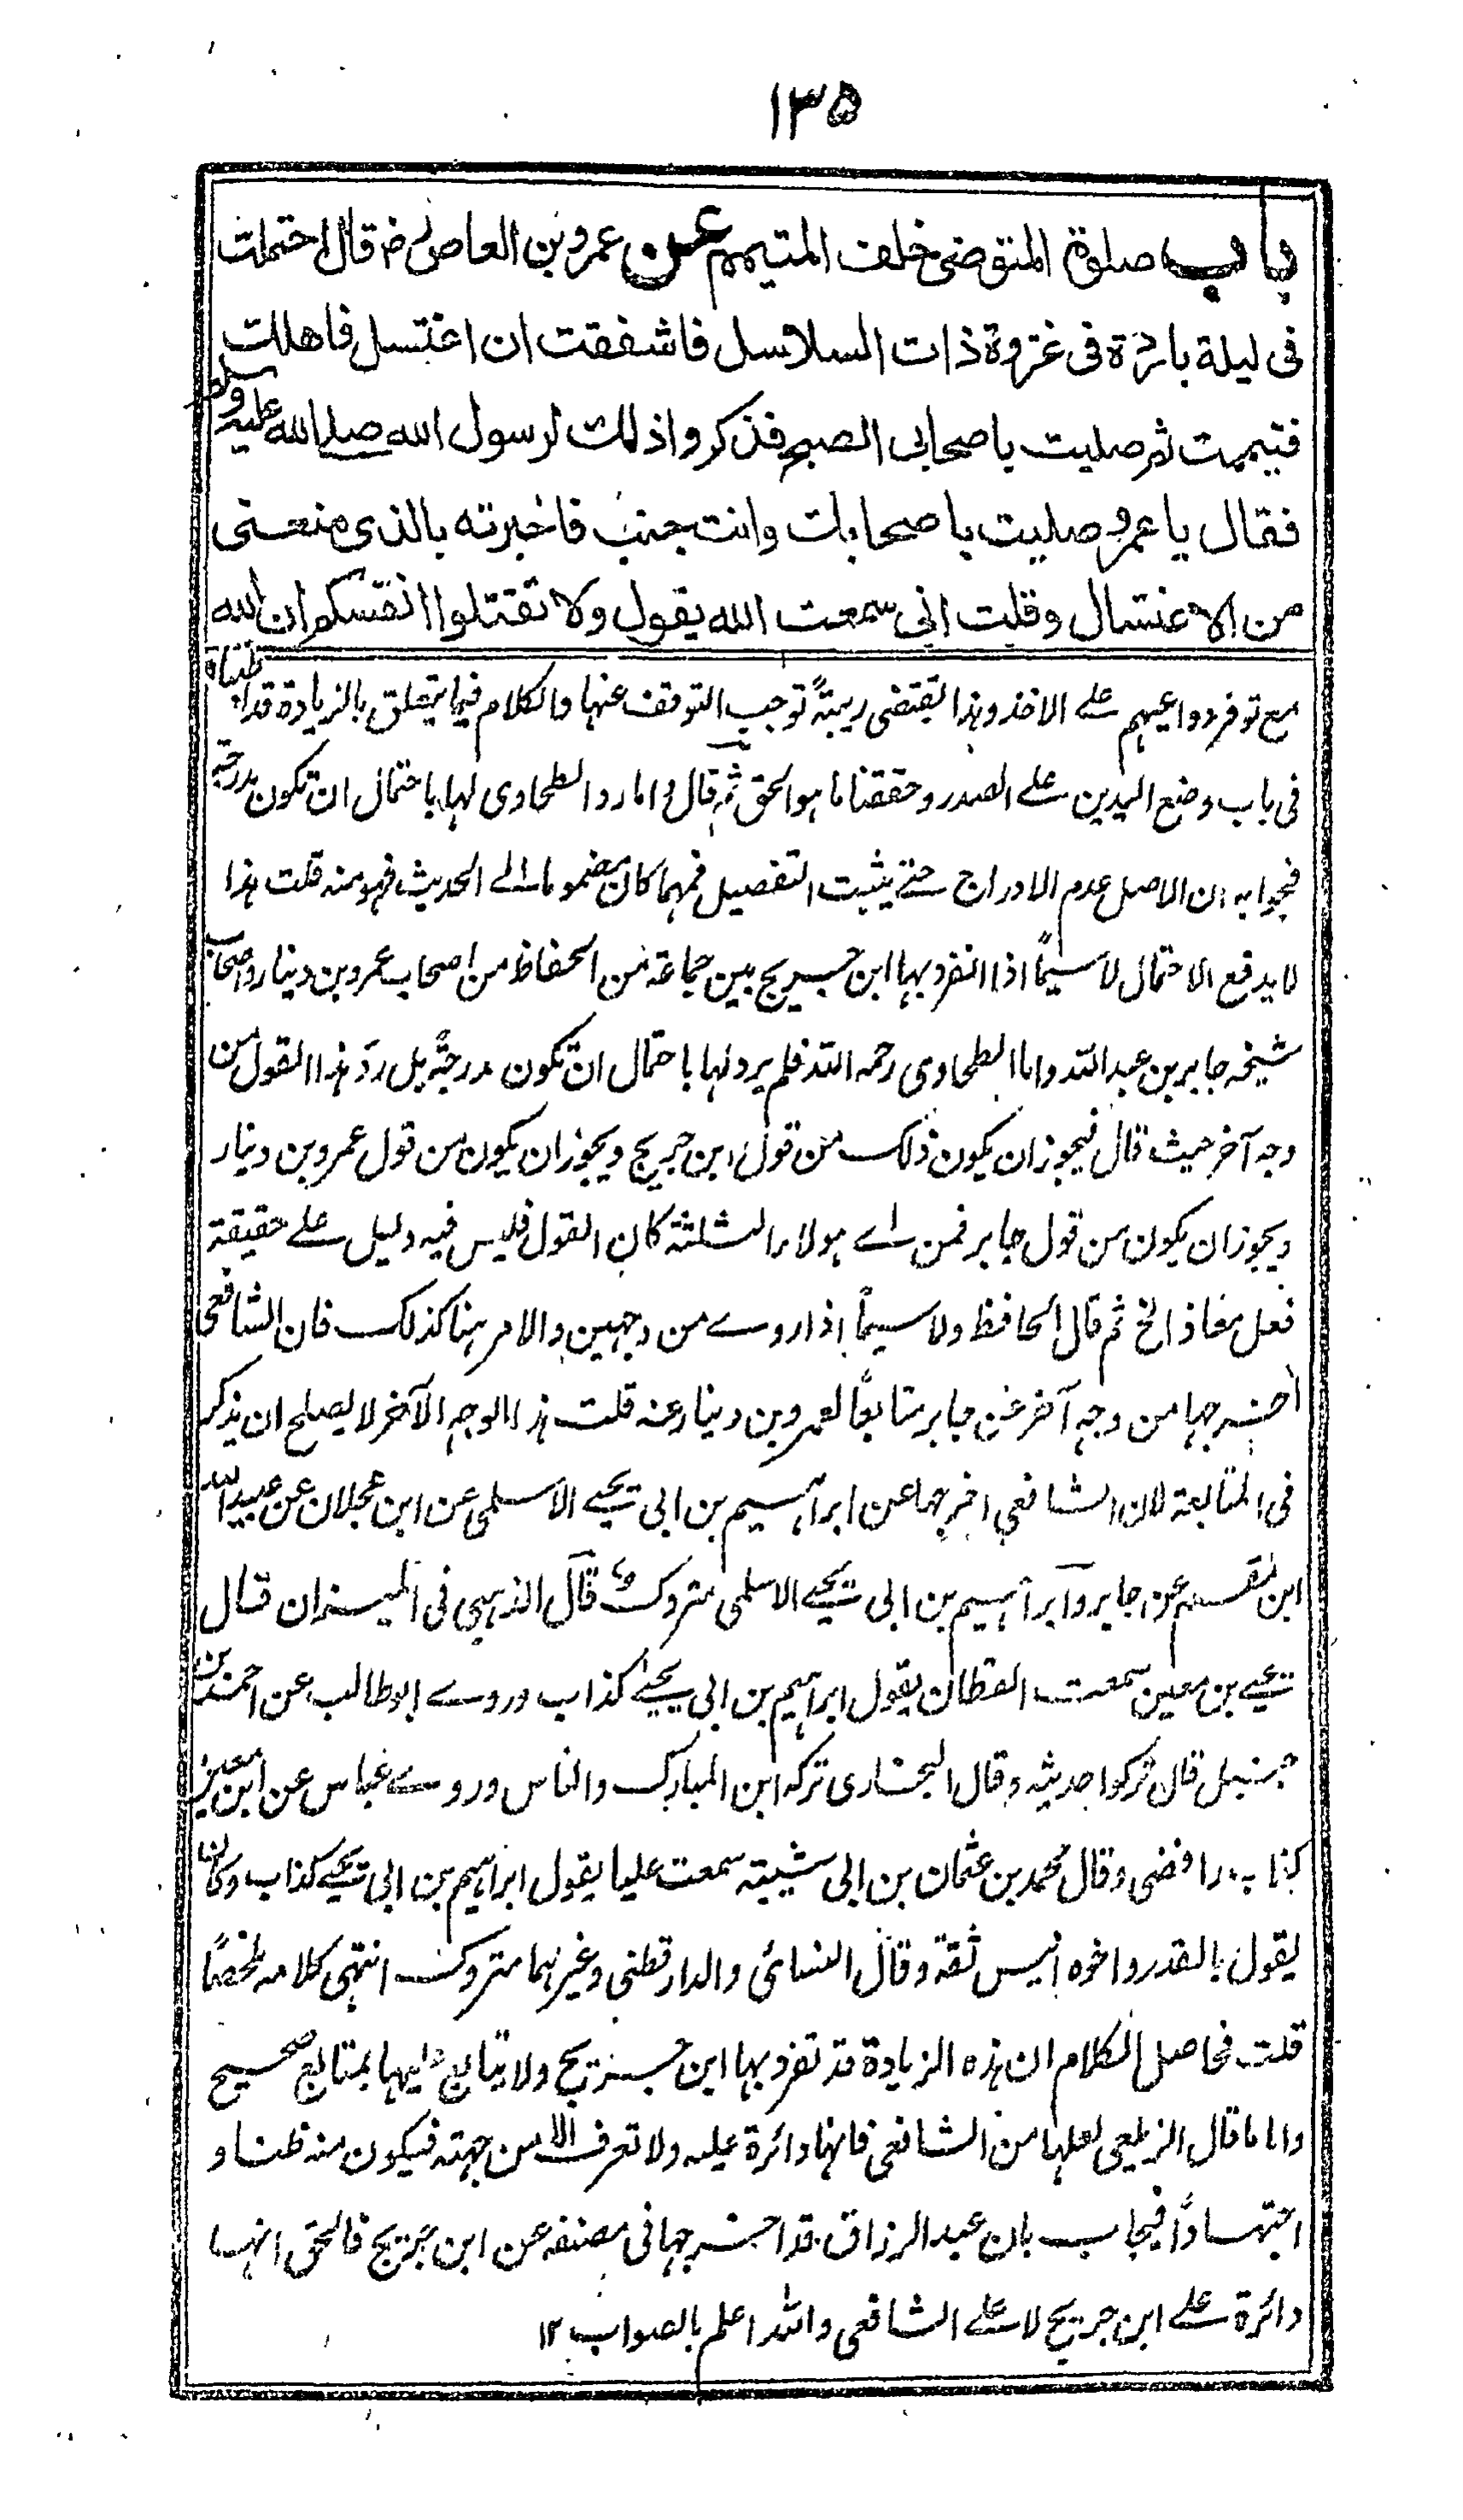 ١٣٥
باب صلوة المتوضئ خلف المتيمم عن عمرو بن العاص رض قال احتملت
فى ليلة باردة فى غزوة ذات السلاسل فاشفقت ان اغتسل فاهلك
فتيممت ثم صليت باصحابى الصبح فذكروا ذلك لرسول الله صلى الله عليه وسلم
فقال يا عمرو صليت باصحابك وانت جنب فاخبرته بالذى منعنى
من الاغتسال وقلت انى سمعت الله يقول ولا تقتلوا انفسكم ان الله
مع توفر دواعيهم على الاخذ وهذا يقتضى ريبةً توجب التوقف عنها والكلام فيما يتعلق بالزيادة قد
فى باب وضع اليدين على الصدر وحققنا ما هو الحق ثم قال واما رد الطحاوى لها باحتمال ان تكون مدرجة
فجوابه ان الاصل عدم الادراج حتى يثبت التفصيل فمهما كان مضموما الى الحديث فهو منه قلت هذا
لا يدفع الاحتمال لا سيماً اذا انفرد بها ابن جريج بين جماعة من الحفاظ من اصحاب عمرو بن دينار واصحاب
شيخه جابر بن عبد الله واما الطحاوى رحمه الله فلم يرد لها باحتمال ان تكون مدرجةً بل ردّ هذا القول من
وجه آخر حيث قال فيجوز ان يكون ذلك من قول ابن جريج ويجوز ان يكون من قول عمرو بن دينار
ويجوز ان يكون من قول جابر فمن اى هولاء الثلثة كان القول فليس فيه دليل على حقيقة
فعل معاذ الخ ثم قال الحافظ ولا سيماً اذا روى من وجهين والامر هنا كذلك فان الشافعى
اخرجها من وجه آخر عن جابر متابعاً لعمرو بن دينار عنه قلت هذا الوجه الآخر لا يصلح ان يذكر
فى المتابعة لان الشافعى اخرجها عن ابراهيم بن ابى يحيى الاسلمى عن ابن عجلان عن عبيد الله
ابن مقسم عن جابر وابراهيم بن ابى يحيى الاسلمى متروك قال الذهبى فى الميزان قال
يحيى بن معين سمعت القطان يقول ابراهيم بن ابى يحيى كذاب وروى ابو طالب عن احمد بن
حنبل قال تركوا حديثه وقال البخارى تركه ابن المبارك والناس وروى عباس عن ابن معين
كذاب رافضى وقال محمد بن عثمان بن ابى شيبة سمعت عليا يقول ابراهيم بن ابى يحيى كذاب وكان
يقول بالقدر واخوه انيس ثقة وقال النسائى والدارقطنى وغيرهما متروك انتهى كلامه ملخصاً
قلت فحاصل الكلام ان هذه الزيادة قد تفرد بها ابن جريج ولا يتابع عليها بمتابع صحيح
واما ما قال الزيلعى لعلها من الشافعى فانها دائرة عليه ولا تعرف الا من جهته فيكون منه ظنا و
اجتهاداً فيجاب بان عبد الرزاق قد اخرجها فى مصنفه عن ابن جريج فالحق انها
دائرة على ابن جريج لا على الشافعى والله اعلم بالصواب ١٢